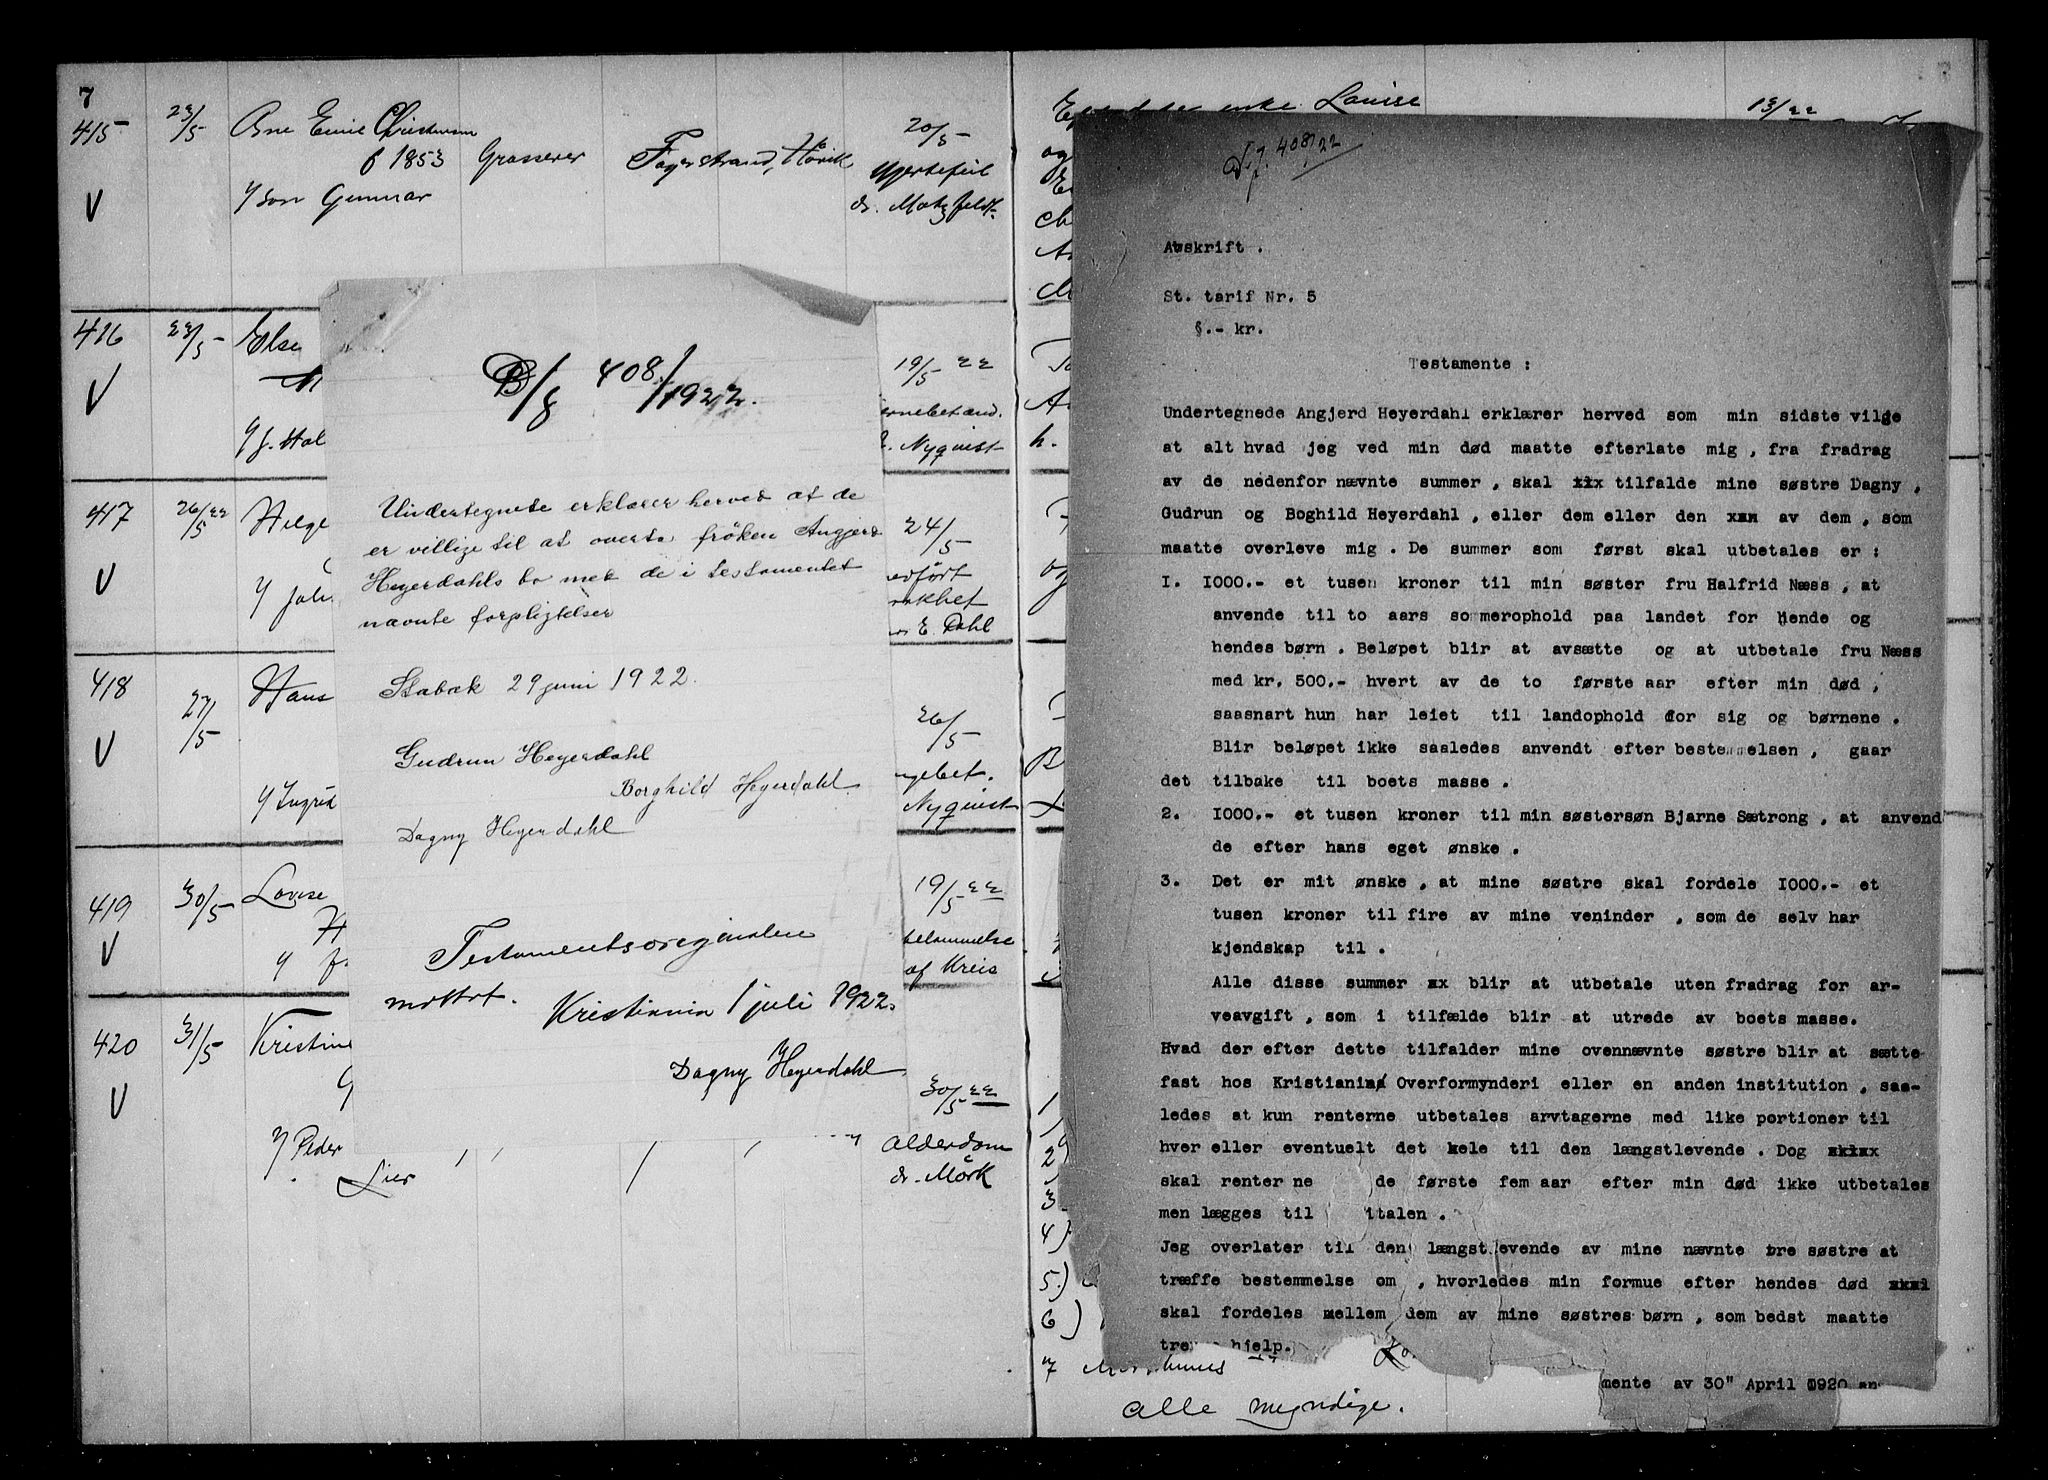 7
415 23/5 Arne Emil Christensen
f 1853 Grosserer Fagerstrand, Hövik 20/5
V Hjertefeil
dr. Motzfeldt
Enke Louise
416 22/5 Else 19/5 22
V
Nyqvist
417 26/5 22 Helge 24/5
V
E. Dahl
418 27/5 Hans 26/5
V
Nyqvist
419 30/5 Lovise 19/5 22
V
af Kreis
420 31/5 Kristine
V 30/5 22
Peder Alderdom
Lier dr. Mörk
B/j 408/1922.
Undertegnete erklærer herved at de
er villige til at overta fröken Angjerd
Heyerdahls bo med de i testamentet
nævnte forpligtelser
Stabæk 29 juni 1922.
Gudrun Heyerdahl
Borghild Heyerdahl
Dagny Heyerdahl
Testamentsoriginalen
mottat.
Kristiania 1 juli 1922.
Dagny Heyerdahl
408/22
Avskrift .
St. tarif Nr. 5
6.- kr.
Testamente :
Undertegnede Angjerd Heyerdahl erklærer herved som min sidste vilge
at alt hvad jeg ved min død maatte efterlate mig , fra fradrag
av de nedenfor nævnte summer , skal xxx tilfalde mine søstre Dagny ,
Gudrun og Boghild Heyerdahl , eller dem eller den xxx av dem , som
maatte overleve mig . De summer som først skal utbetales er :
1. 1000.- et tusen kroner til min søster fru Halfrid Næss , at
anvende til to aars sommerophold paa landet for hende og
hendes børn . Beløpet blir at avsætte og at utbetale fru Næss
med kr. 500.- hvert av de to første aar efter min død ,
saasnart hun har leiet til landophold for sig og børnene .
Blir beløpet ikke saaledes anvendt efter bestemmelsen , gaar
det tilbake til boets masse .
2. 1000.- et tusen kroner til min søstersøn Bjarne Sætrong , at anvend
de efter hans eget ønske .
3. Det er mit ønske , at mine søstre skal fordele 1000.- et
tusen kroner til fire av mine veninder , som de selv har
kjendskap til .
Alle disse summer xx blir at utbetale uten fradrag for ar-
veavgift , som i tilfælde blir at utrede av boets masse.
Hvad der efter dette tilfalder mine ovennævnte søstre blir at sætte
fast hos Kristiania Overformynderi eller en anden institution , saa-
ledes at kun renterne utbetales arvtagerne med like portioner til
hver eller eventuelt det hele til den længstlevende . Dog xxxxx
skal renterne de første fem aar efter min død ikke utbetales
men lægges til italen .
Jeg overlater til den længstlevende av mine nævnte tre søstre at
træffe bestemmelse om , hvorledes min formue efter hendes død xxxx
skal fordeles mellem dem av mine søstres børn , som bedst maatte
hjelp.
mente av 30" April 1920
1
2
3
4)
5)
6)
7
alle myndige.